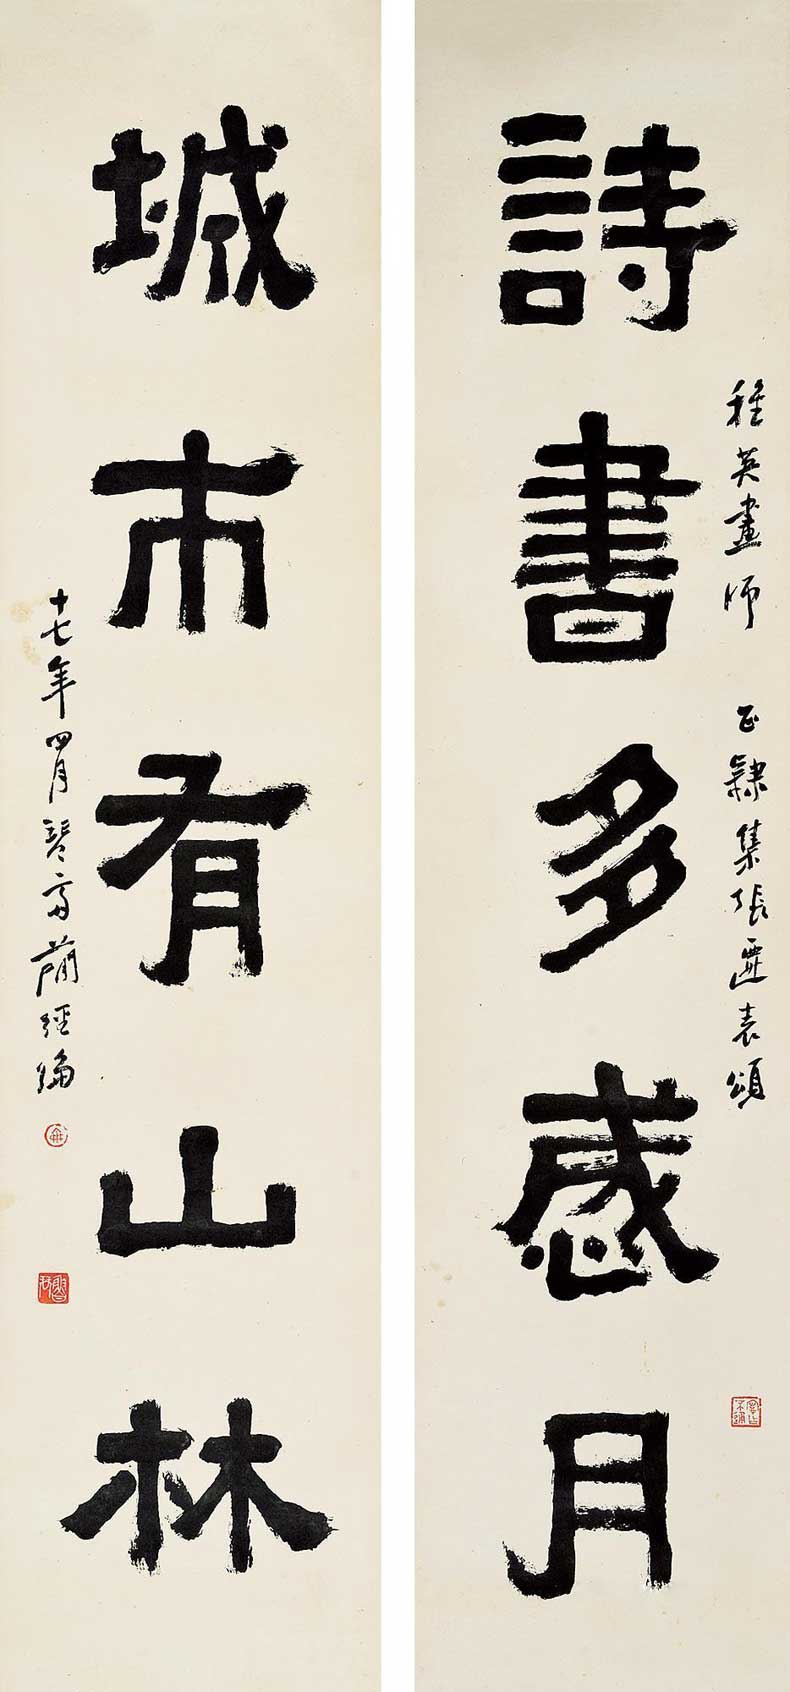 詩書多歲月
稚英畫師 正隸集張遷表頌
城市有山林
十七年四月琴齋簡經綸